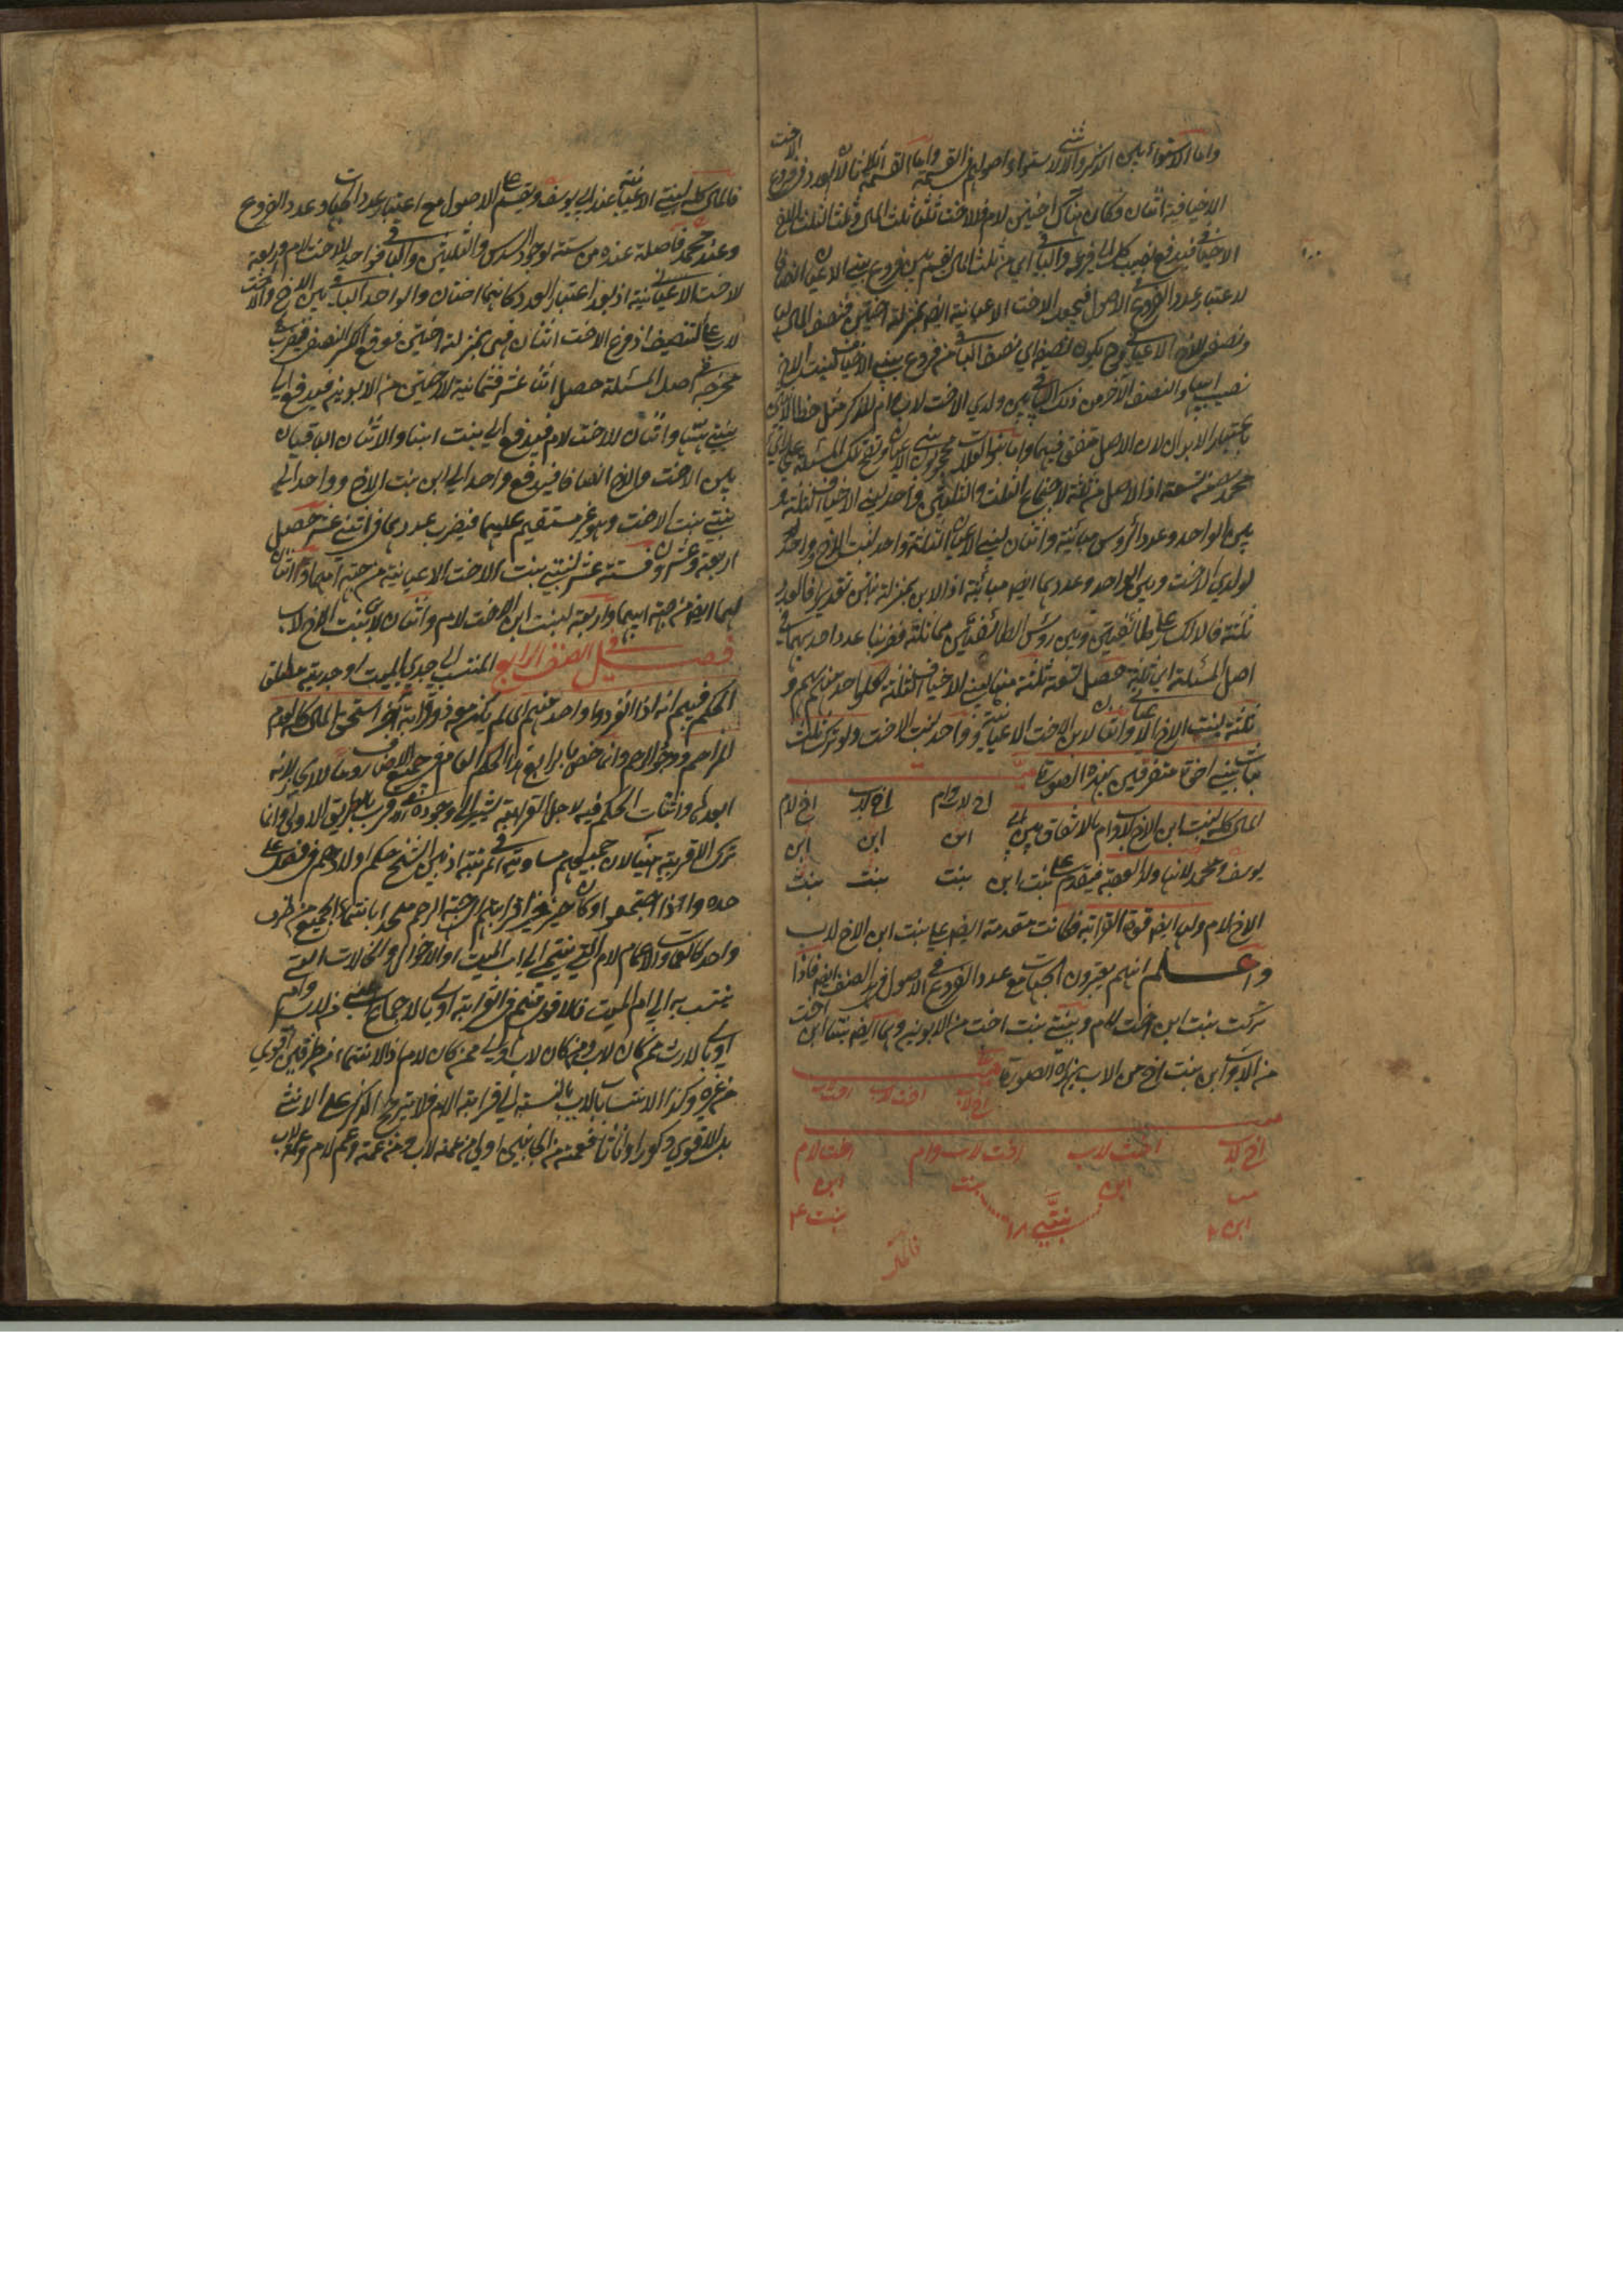 واما الاستواء بين الذكر والانثى لاستواء اصولهم في القسمة واما القسمة اثلاثا لان العدد في فروع الاخت
الاخيافية اثنان فكان هناك اختين لام فلاخت ثلثا ثلث المال وثلث الثلث للاخ
الاخيافي فيدفع نصيب كل الى فرعه والباقي اي من ثلث المال يقسم بين فروع بني الاعيان انصافا
لاعتبار عدد الفروع في الاصول فيجعل الاخت الاعيانية ايضا بمنزلة اختين فنصف المال لها
ونصف للاخ الاعياني وح يكون نصفه اي نصف الباقي من فروع بني الاعيان لبنت الاخ
نصيب ابيها والنصف الآخر من ذلك الباقي بين ولدي الاخت لاب وام للذكر مثل حظ الانثيين
باعتبار الابدان لان الاصل متفق فيهما واما بنوا العلات محجوبون ببني الاعيان وتصح تلك المسئلة عند
محمد من تسعة اذ الاصل من ثلثة لاجتماع الثلث والثلثين فواحد لبني الاخياف الثلثة و
بين الواحد وعدد الرؤس مباينة واثنان لبني الاعيان الثلثة واحد لبنت الاخ وواحد
لولدي الاخت وبين الواحد وعددهما ايضا مباينة اذ الابن بمنزلة بنتين تقديرا فالعدد
ثلثة فالانكسار على طائفتين وبين رؤس الطائفتين مماثلة فضربنا عدد احدهما في
اصل المسئلة اي ثلثة حصل تسعة ثلثة منها لبني الاخياف الثلثة لكل واحد منهم سهم و
ثلثة لبنت الاخ الاعياني واثنان لابن الاخت الاعيانية وواحد لبنت الاخت ولو ترك ثلث
بنات بني اخوة متفرقين بهذه الصورة
اخ لاب وام اخ لاب اخ لام
المال كله لبنت ابن الاخ لاب وام بالاتفاق بين ابي
ابن ابن ابن
يوسف ومحمد لانها ولد العصبة فيقدم على بنت ابن
بنت بنت بنت
الاخ لام ولها ايضا قوة القرابة فكانت مقدمة ايضا على بنت ابن الاخ لاب
واعلم انهم يعتبرون الجهات مع عدد الفروع في الاصول في هذا الصنف ايضا فاذا
تركت بنت ابن اخت لام وبنتي بنت اخت من الابوين وهما ايضا بنتا ابن اخت
من الاب وابن بنت اخ من الاب بهذه الصورة
اخ لاب اخت لاب
اخ لاب اخت لاب اخت لاب وام اخت لام
بنت ابن بنت ابن
ابن بنتي بنت
فالمال كله لبنتي الاعيانية عند ابي يوسف ويقسم على الاصول مع اعتبار عدد الجهات وعدد الفروع
وعند محمد فاصله عنده من ستة لوجود السدس والثلثين والباقي فواحد للاخت لام واربعة
للاخت الاعيانية اذ بعد اعتبار العدد كانهما اختان والواحد الباقي بين الاخ والاخت
لاب على التنصيف اذ فرع الاخت اثنان فهي بمنزلة اختين فوقع الكسر النصف فضرب
مخرجه في اصل المسئلة حصل اثنا عشر فثمانية للاختين من الابوين فيدفع الى
بنتي بنتها واثنان للاخت لام فيدفع الى بنت ابنها والاثنان الباقيان
بين الاخت والاخ انصافا فيدفع واحد الى ابن بنت الاخ وواحد الى
بنتي بنت الاخت وهو غير مستقيم عليهما فيضرب عددهما في اثني عشر حصل
اربعة وعشرون فستة عشر لبنتي بنت الاخت الاعيانية من جهة امهما واثنان
لهما ايضا من جهة ابيهما واربعة لبنت ابن الاخت لام واثنان لابن بنت الاخ لاب
فصل في الصنف الرابع المنتسب الى جدي الميت او جدتيه مطلق
الحكم فيهم انه اذا انفرد واحد منهم اي لم يكن معه ذو قرابة آخر استحق المال كله لعدم
المزاحم ووجود الرحم وانما خص بالرابع هذا الحكم العام في جميع الاصناف
ابعدها واثبات الحكم فيه لاجل القرابة يشير الى وجوده في الاقرب بالطريق الاولى وانما
ترك الاقربية هنا لان جميعهم متساوية في المرتبة اذ بين الشيخ حكم اولادهم في فصل على
حده واذا اجتمعوا وكان حيز قرابتهم اي جهة الرحم متحدا بانتماء الجميع من طرف
واحد كالعمات والاعمام لام التي ينتمي الى اب الميت او الاخوال والخالات التي
ينتسب به الى ام الميت فالاقوى منهم في القرابة اولى بالاجماع يعني من لاب وام
اولى بالارث ممن كان لاب ومن كان لاب اولى ممن كان لام اذ الانتماء من طرفين اقوى
من غيره وكذا الانتساب بالاب بالنسبة الى قرابة الام فلا يترجح الذكر على الانثى
بل الاقوى ذكورا واناثا فعمة من الجانبين اولى من عمة لاب ومن عمة وعم لام وعمة لاب